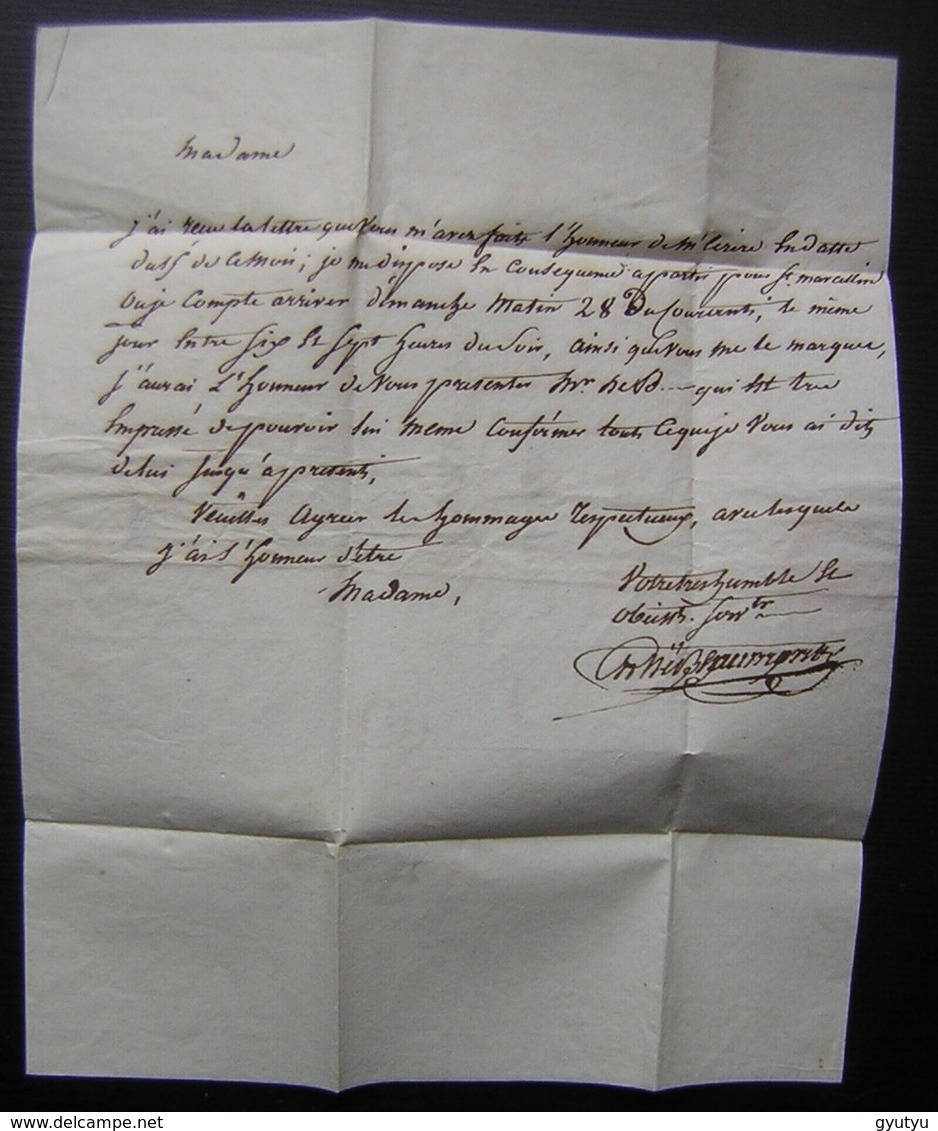 Madame
j'ai reçu la lettre que vous m'avez faite l'honneur de m'ecrire En datte
de ce mois; je me dispose En Conséquence a partir pour St. marcellin
ou je Compte arriver dimanche Matin 28 du Courant, le même
jour Entre six Et sept heures du soir, ainsi que vous me le marquez,
j'aurai L'honneur de vous presenter Mr. de B---- qui Est tres
Empressé de pouvoir lui même Confirmer tout ce que je vous ai dit
de lui jusqu'a present,
Veuillez Agréer les hommages respectueux, avec lesquels
j'ai l'honneur d'être
Madame,
Votre tres humble Et
obeisst. servtr
gyutyu